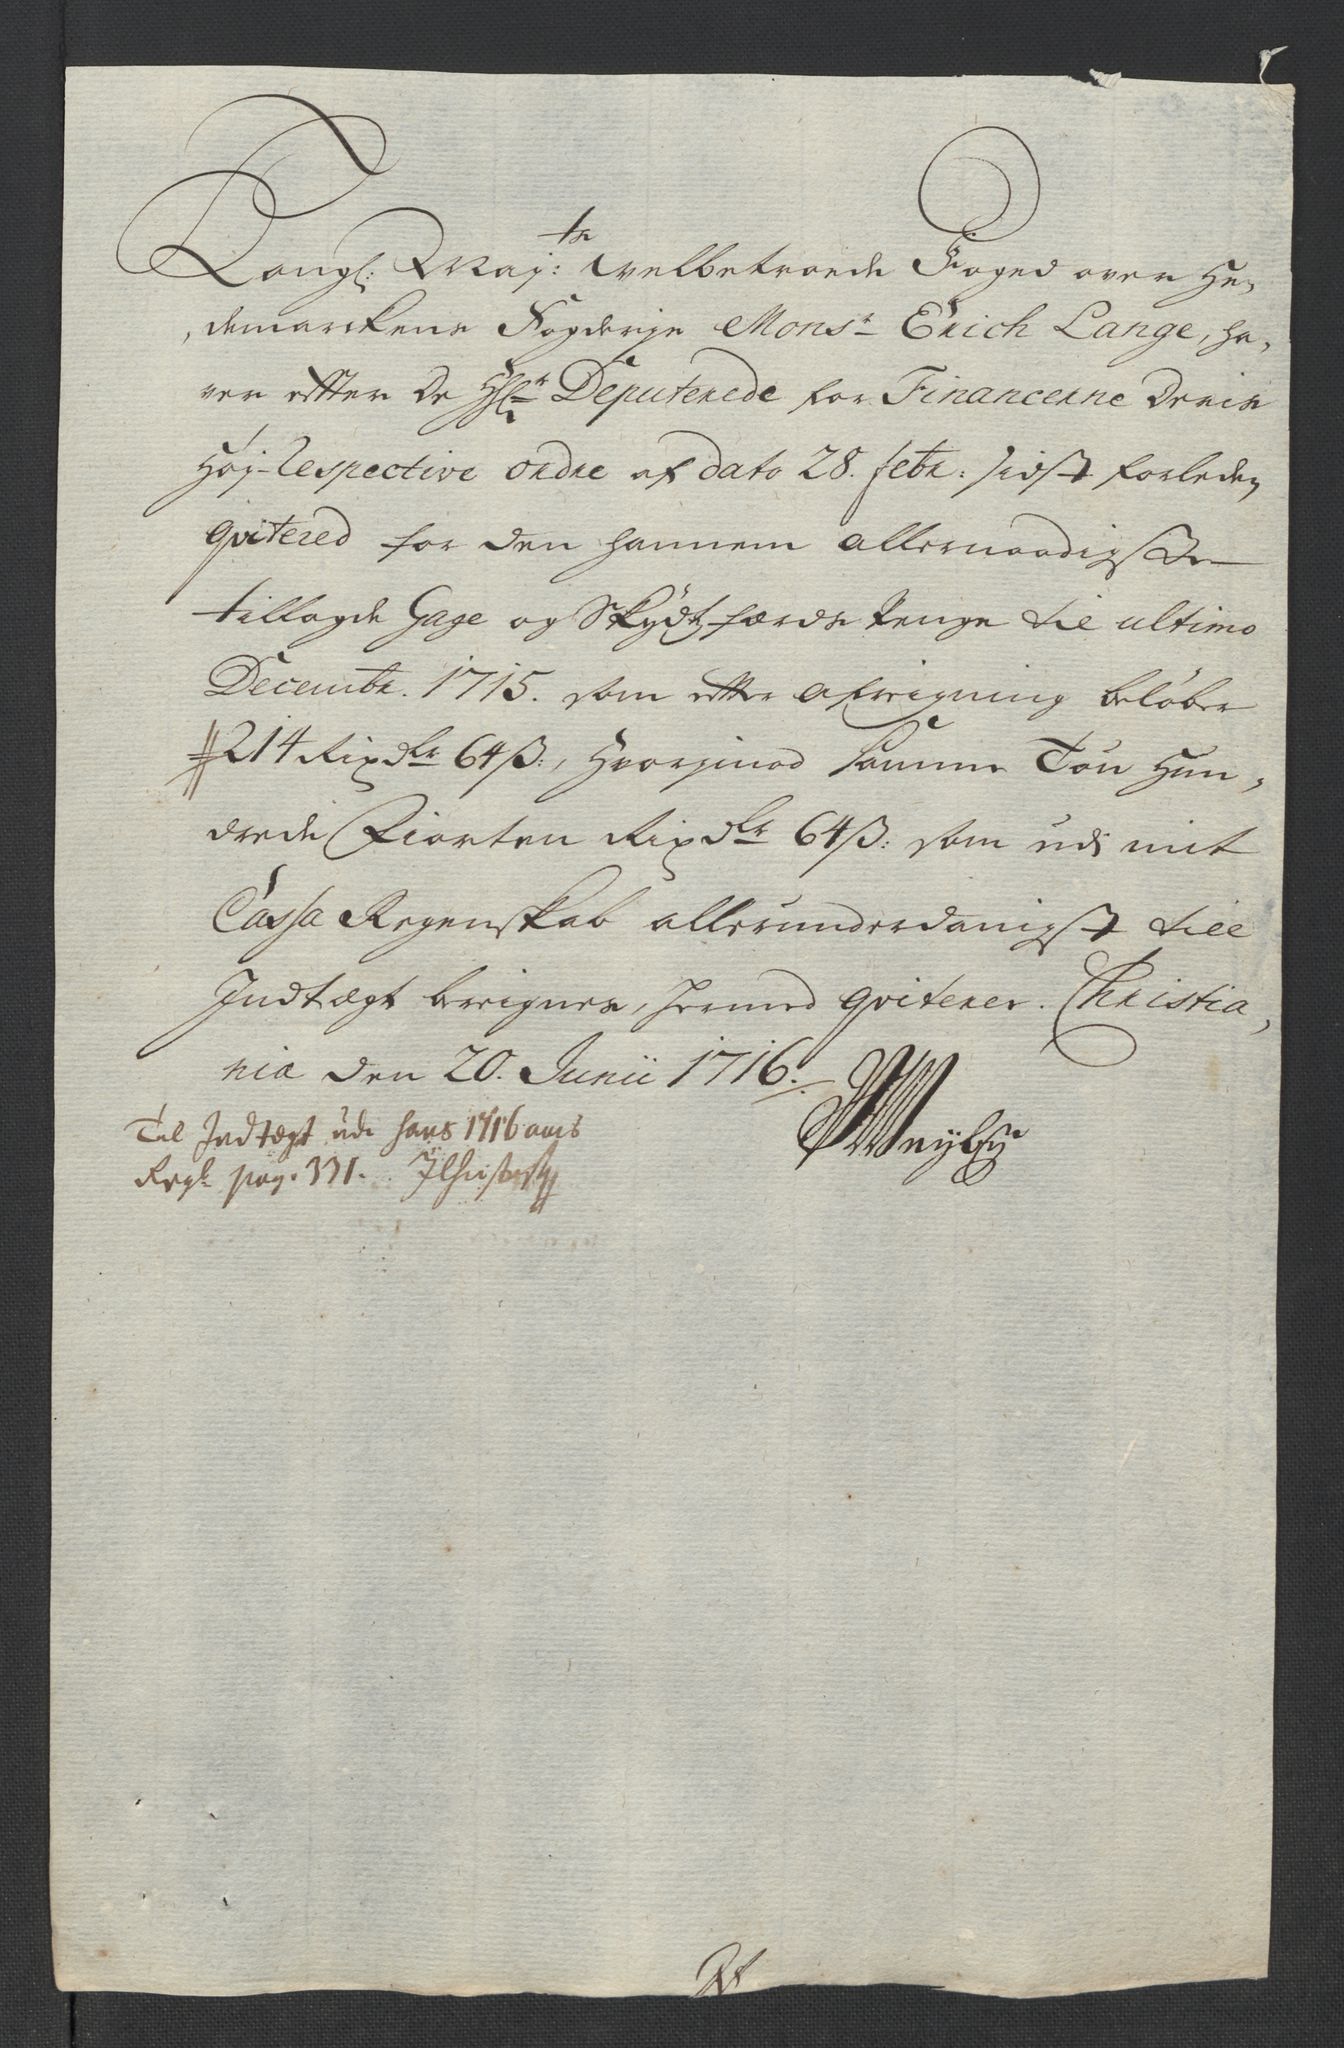 Kongl: Maj:ts welbetroede Foged over He,
demarckens Fogderije Monsr Erich Lange, ha,
ver efter de Hr Deputerede for Financerne Deris
Høj-Respective ordre af dato 28. febr: sidst forleden
qvitered for den hannem allernaadigste
tillagde Gage og Skydtsfærds Penge til ultimo
Decembr. 1715. som efter afreigning beløber
214 Rixdlr 64ß:, Hvorimod samme Tou Hun,
drede Fiorten Rixdlr 64ß: som udi mit
Cassa Regenskab allerunderdanigst till
Indtægt bereignes, hermed qviterer. Christia,
nia den 20. Junii 1716.
Til Indtægt udi hans 1716 aars
Regl. pag. 331.